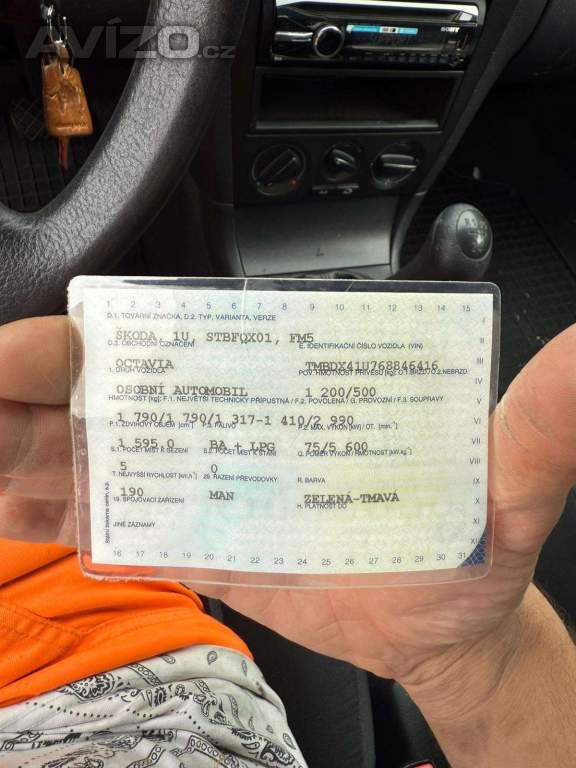 AVÍZO.cz
SONY
1 2 3 4 5 6 7 8 9 10 11 12 13 14 15
D.1. TOVÁRNÍ ZNAČKA, D.2. TYP, VARIANTA, VERZE
ŠKODA, 1U, STBFQX01, FM5
D.3. OBCHODNÍ OZNAČENÍ E. IDENTIFIKAČNÍ ČÍSLO VOZIDLA (VIN)
OCTAVIA TMBDX41U768846416
1. DRUH VOZIDLA POV. HMOTNOST PŘÍVĚSU [kg] O.1.BRZD./O.2.NEBRZD.
OSOBNÍ AUTOMOBIL 1 200/500
HMOTNOST [kg]: F.1. NEJVĚTŠÍ TECHNICKY PŘÍPUSTNÁ / F.2. POVOLENÁ / G. PROVOZNÍ / F.3. SOUPRAVY
1 790/1 790/1 317-1 410/2 990
P.1. ZDVIHOVÝ OBJEM [cm³] P.3. PALIVO P.2. MAX. VÝKON [kW] / OT. [min⁻¹]
1 595.0 BA + LPG 75/5 600
S.1. POČET MÍST K SEZENÍ S.2. POČET MÍST K STÁNÍ Q. POMĚR VÝKON / HMOTNOST [kW.kg⁻¹]
5 0
T. NEJVYŠŠÍ RYCHLOST [km.h⁻¹] 29. ŘAZENÍ PŘEVODOVKY R. BARVA
190 MAN ZELENÁ-TMAVÁ
19. SPOJOVACÍ ZAŘÍZENÍ H. PLATNOST DO
JINÉ ZÁZNAMY
16 17 18 19 20 21 22 23 24 25 26 27 28 29 30 31
I
II
III
IV
V
VI
VII
VIII
IX
X
XI
XII
Státní tiskárna cenin, s.p.